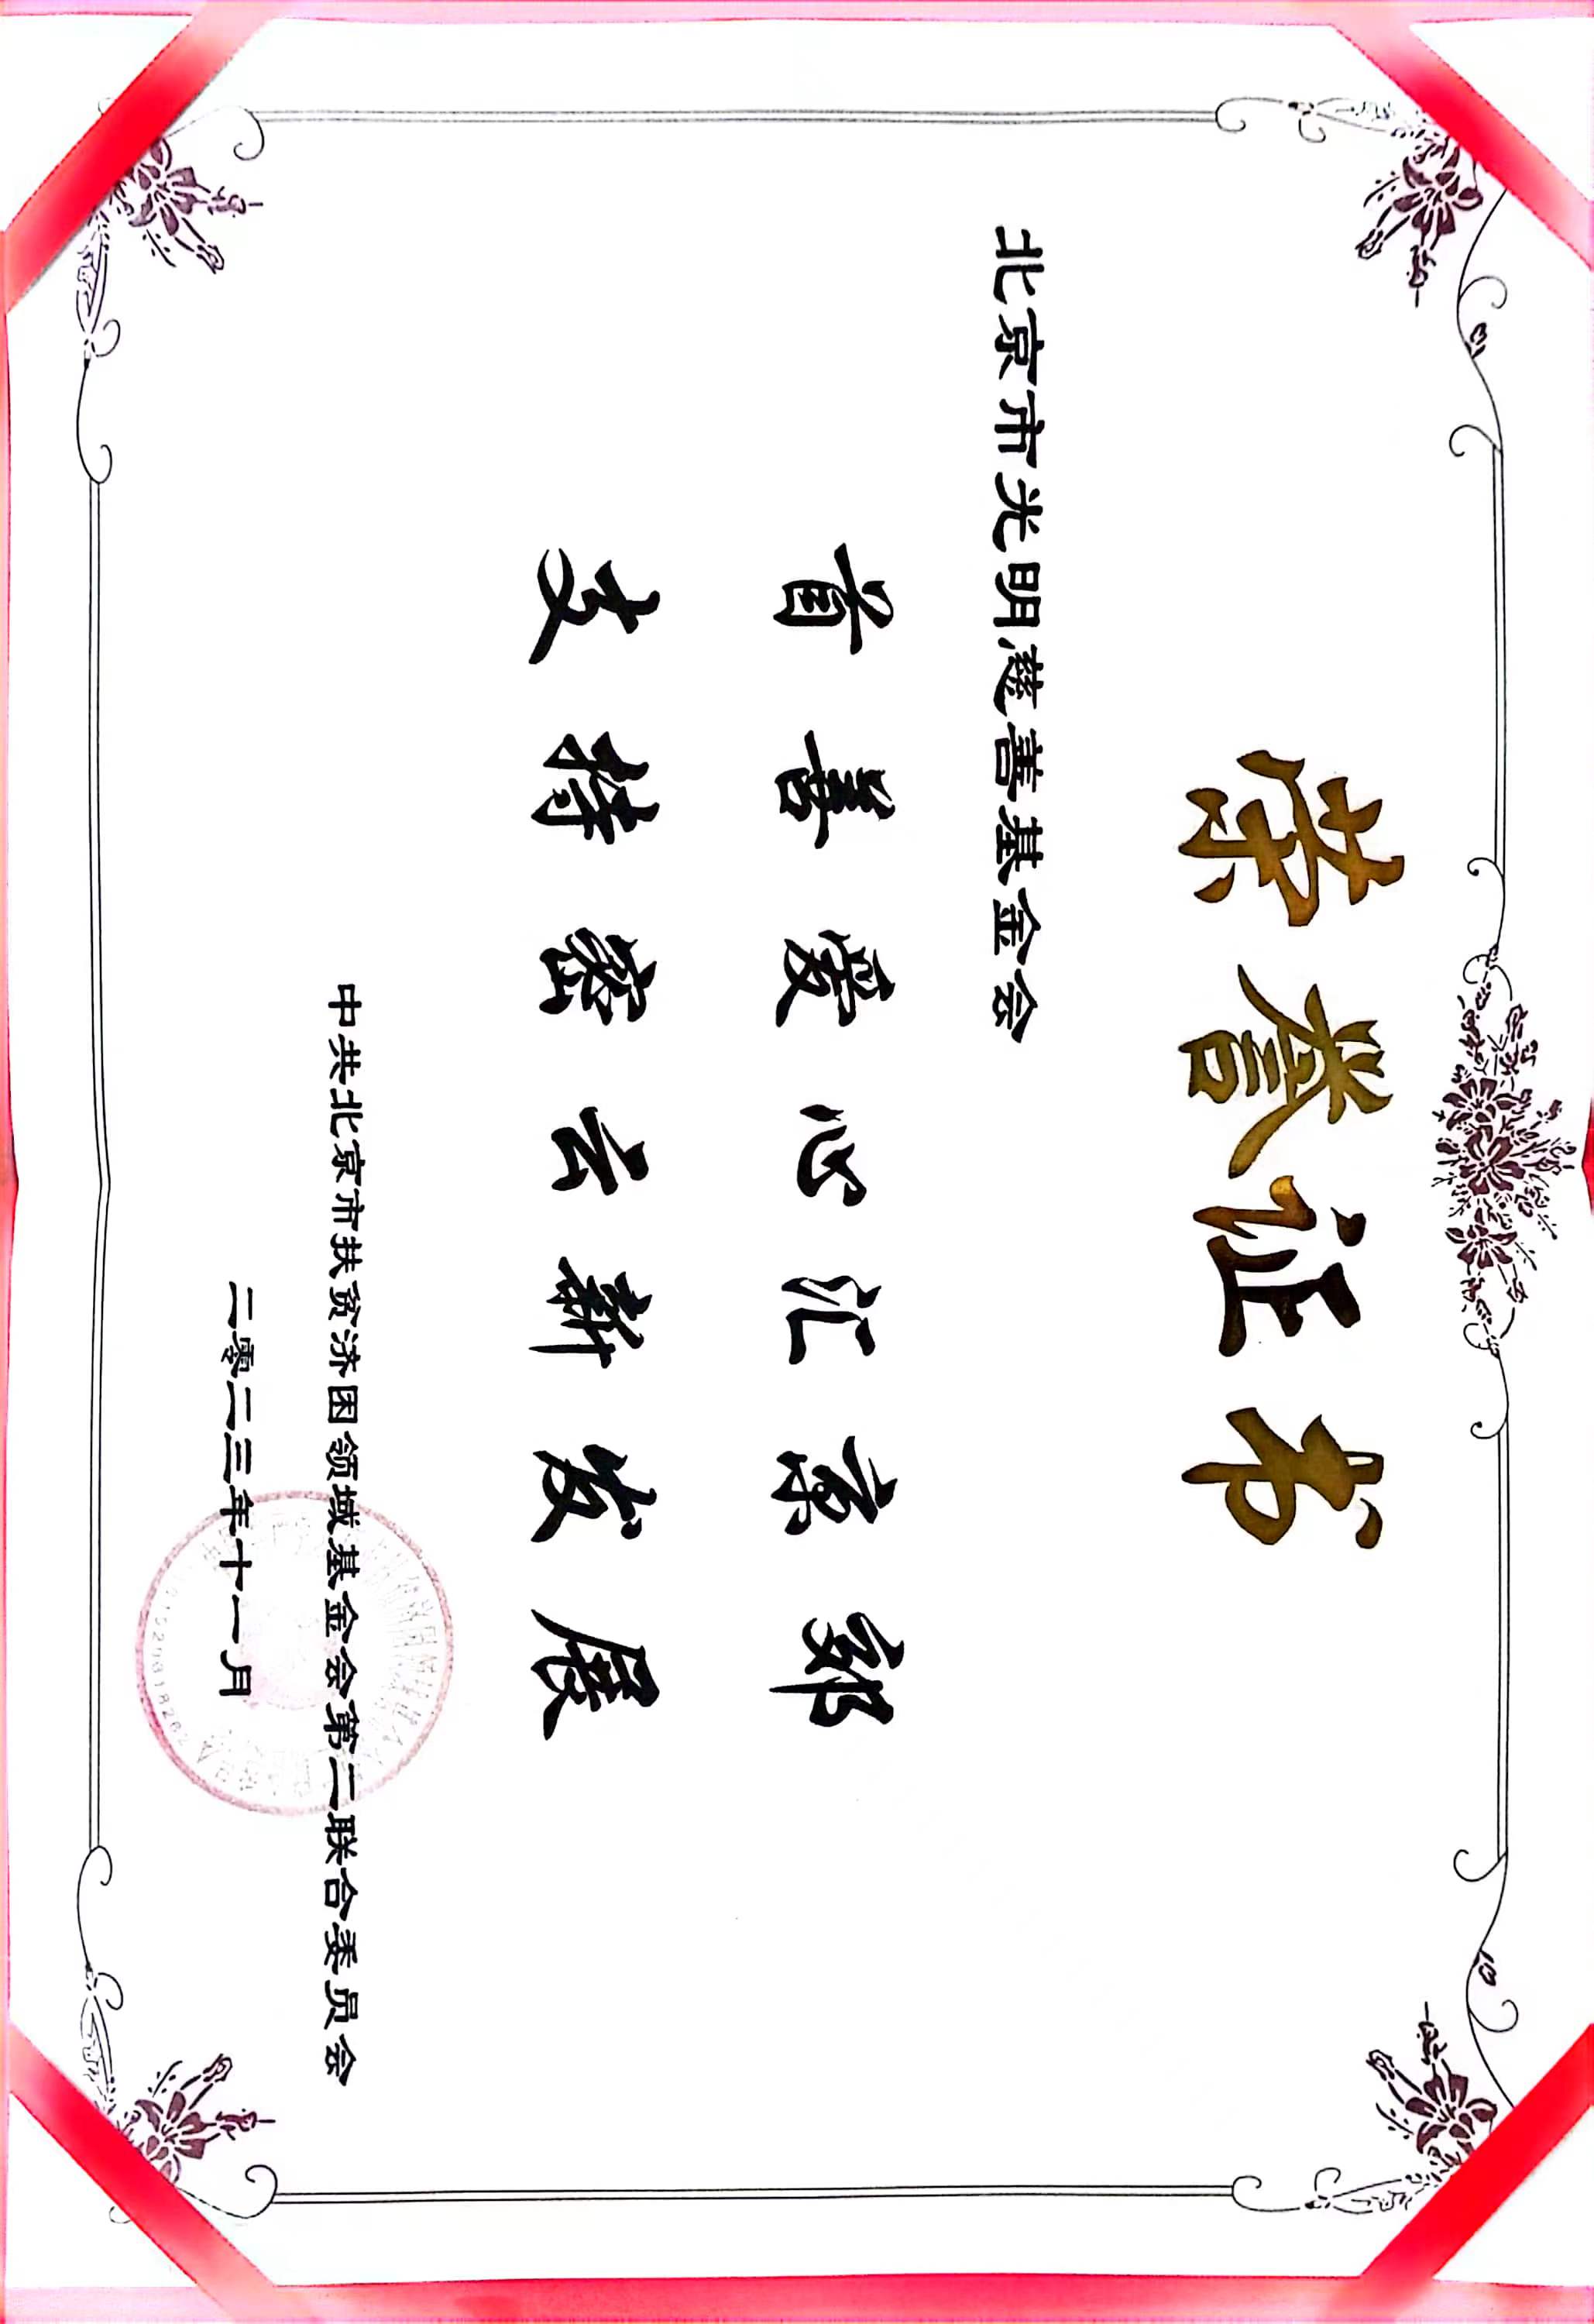 荣誉证书
北京市光明慈善基金会
首善爱心汇京郊
支持密云新发展
中共北京市扶贫济困领域基金会第二联合委员会
二零二三年十一月